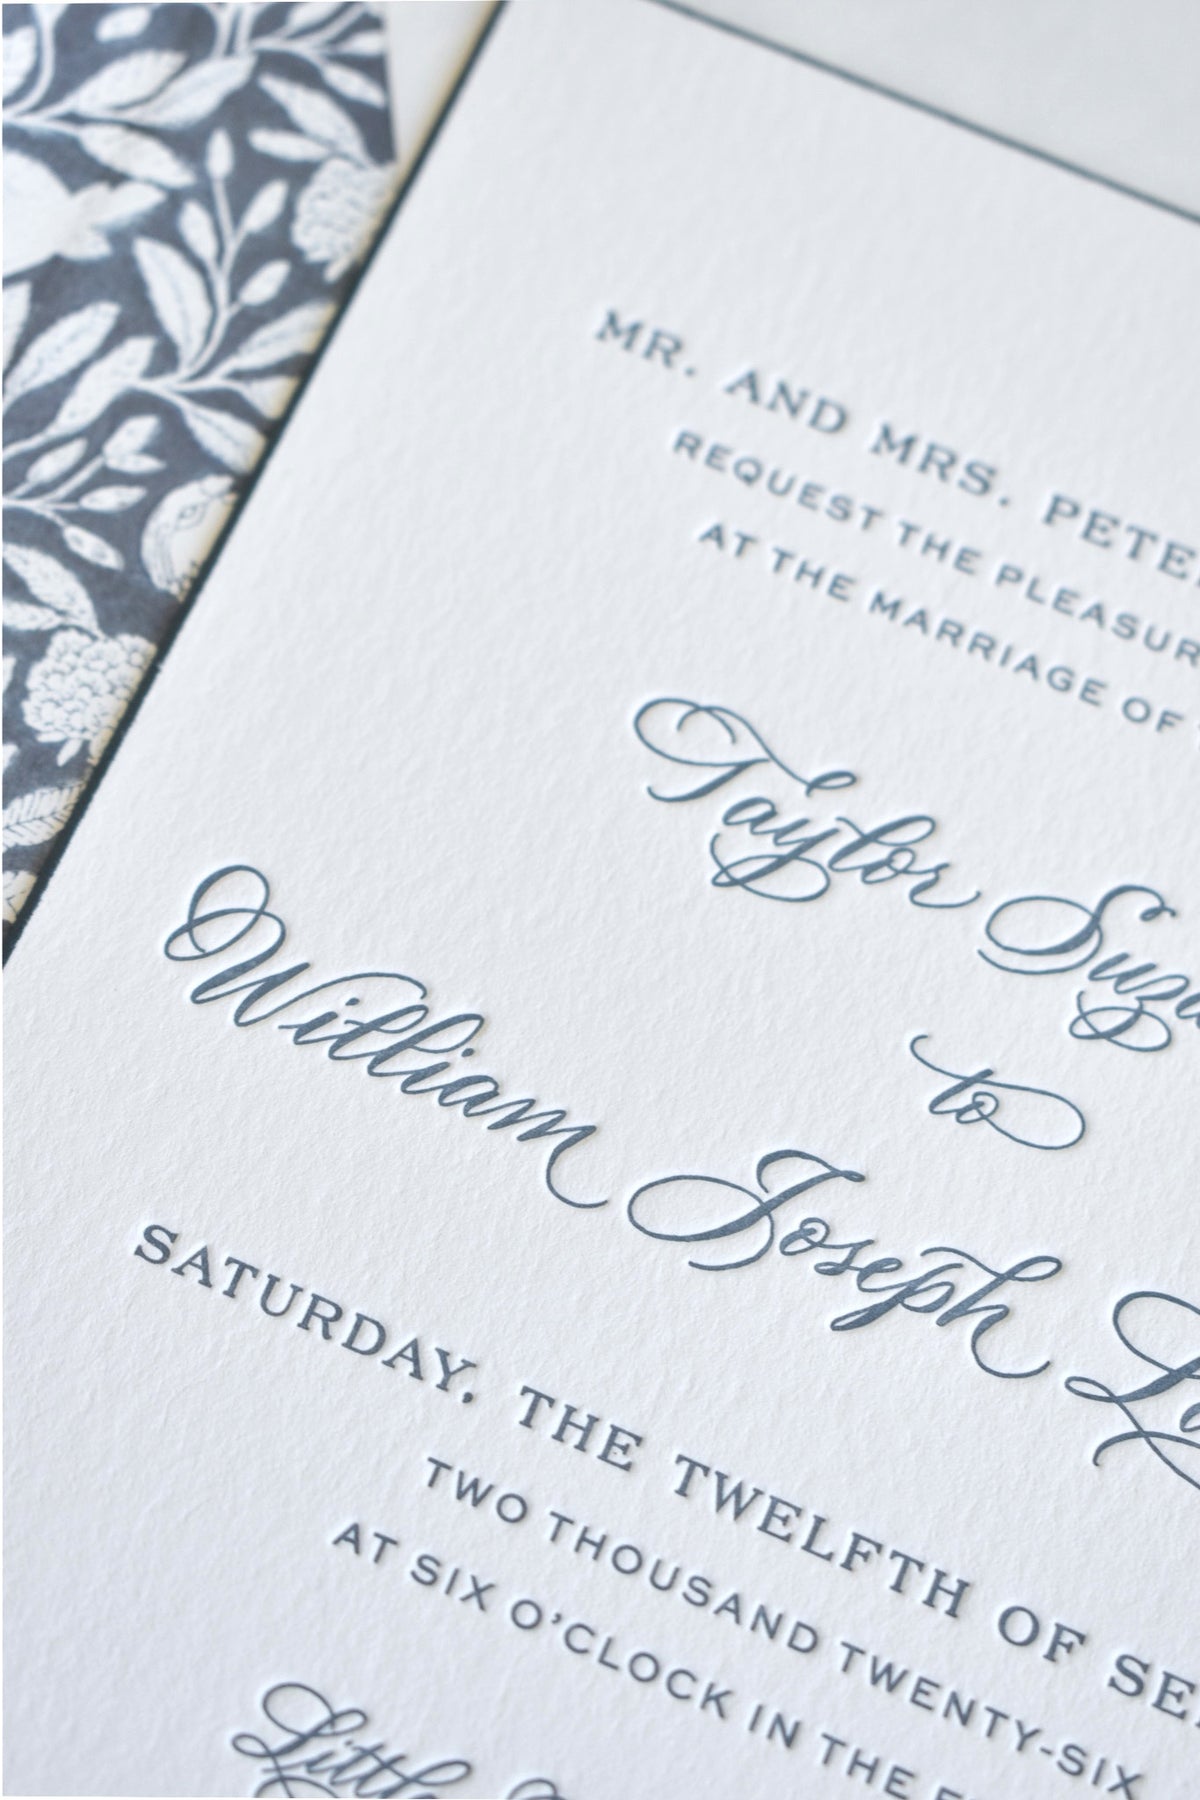 MR. AND MRS. PETE
REQUEST THE PLEASUR
AT THE MARRIAGE OF
Taylor Suz
to
William Joseph L
SATURDAY, THE TWELFTH OF SE
TWO THOUSAND TWENTY-SIX
AT SIX O'CLOCK IN THE E
Little